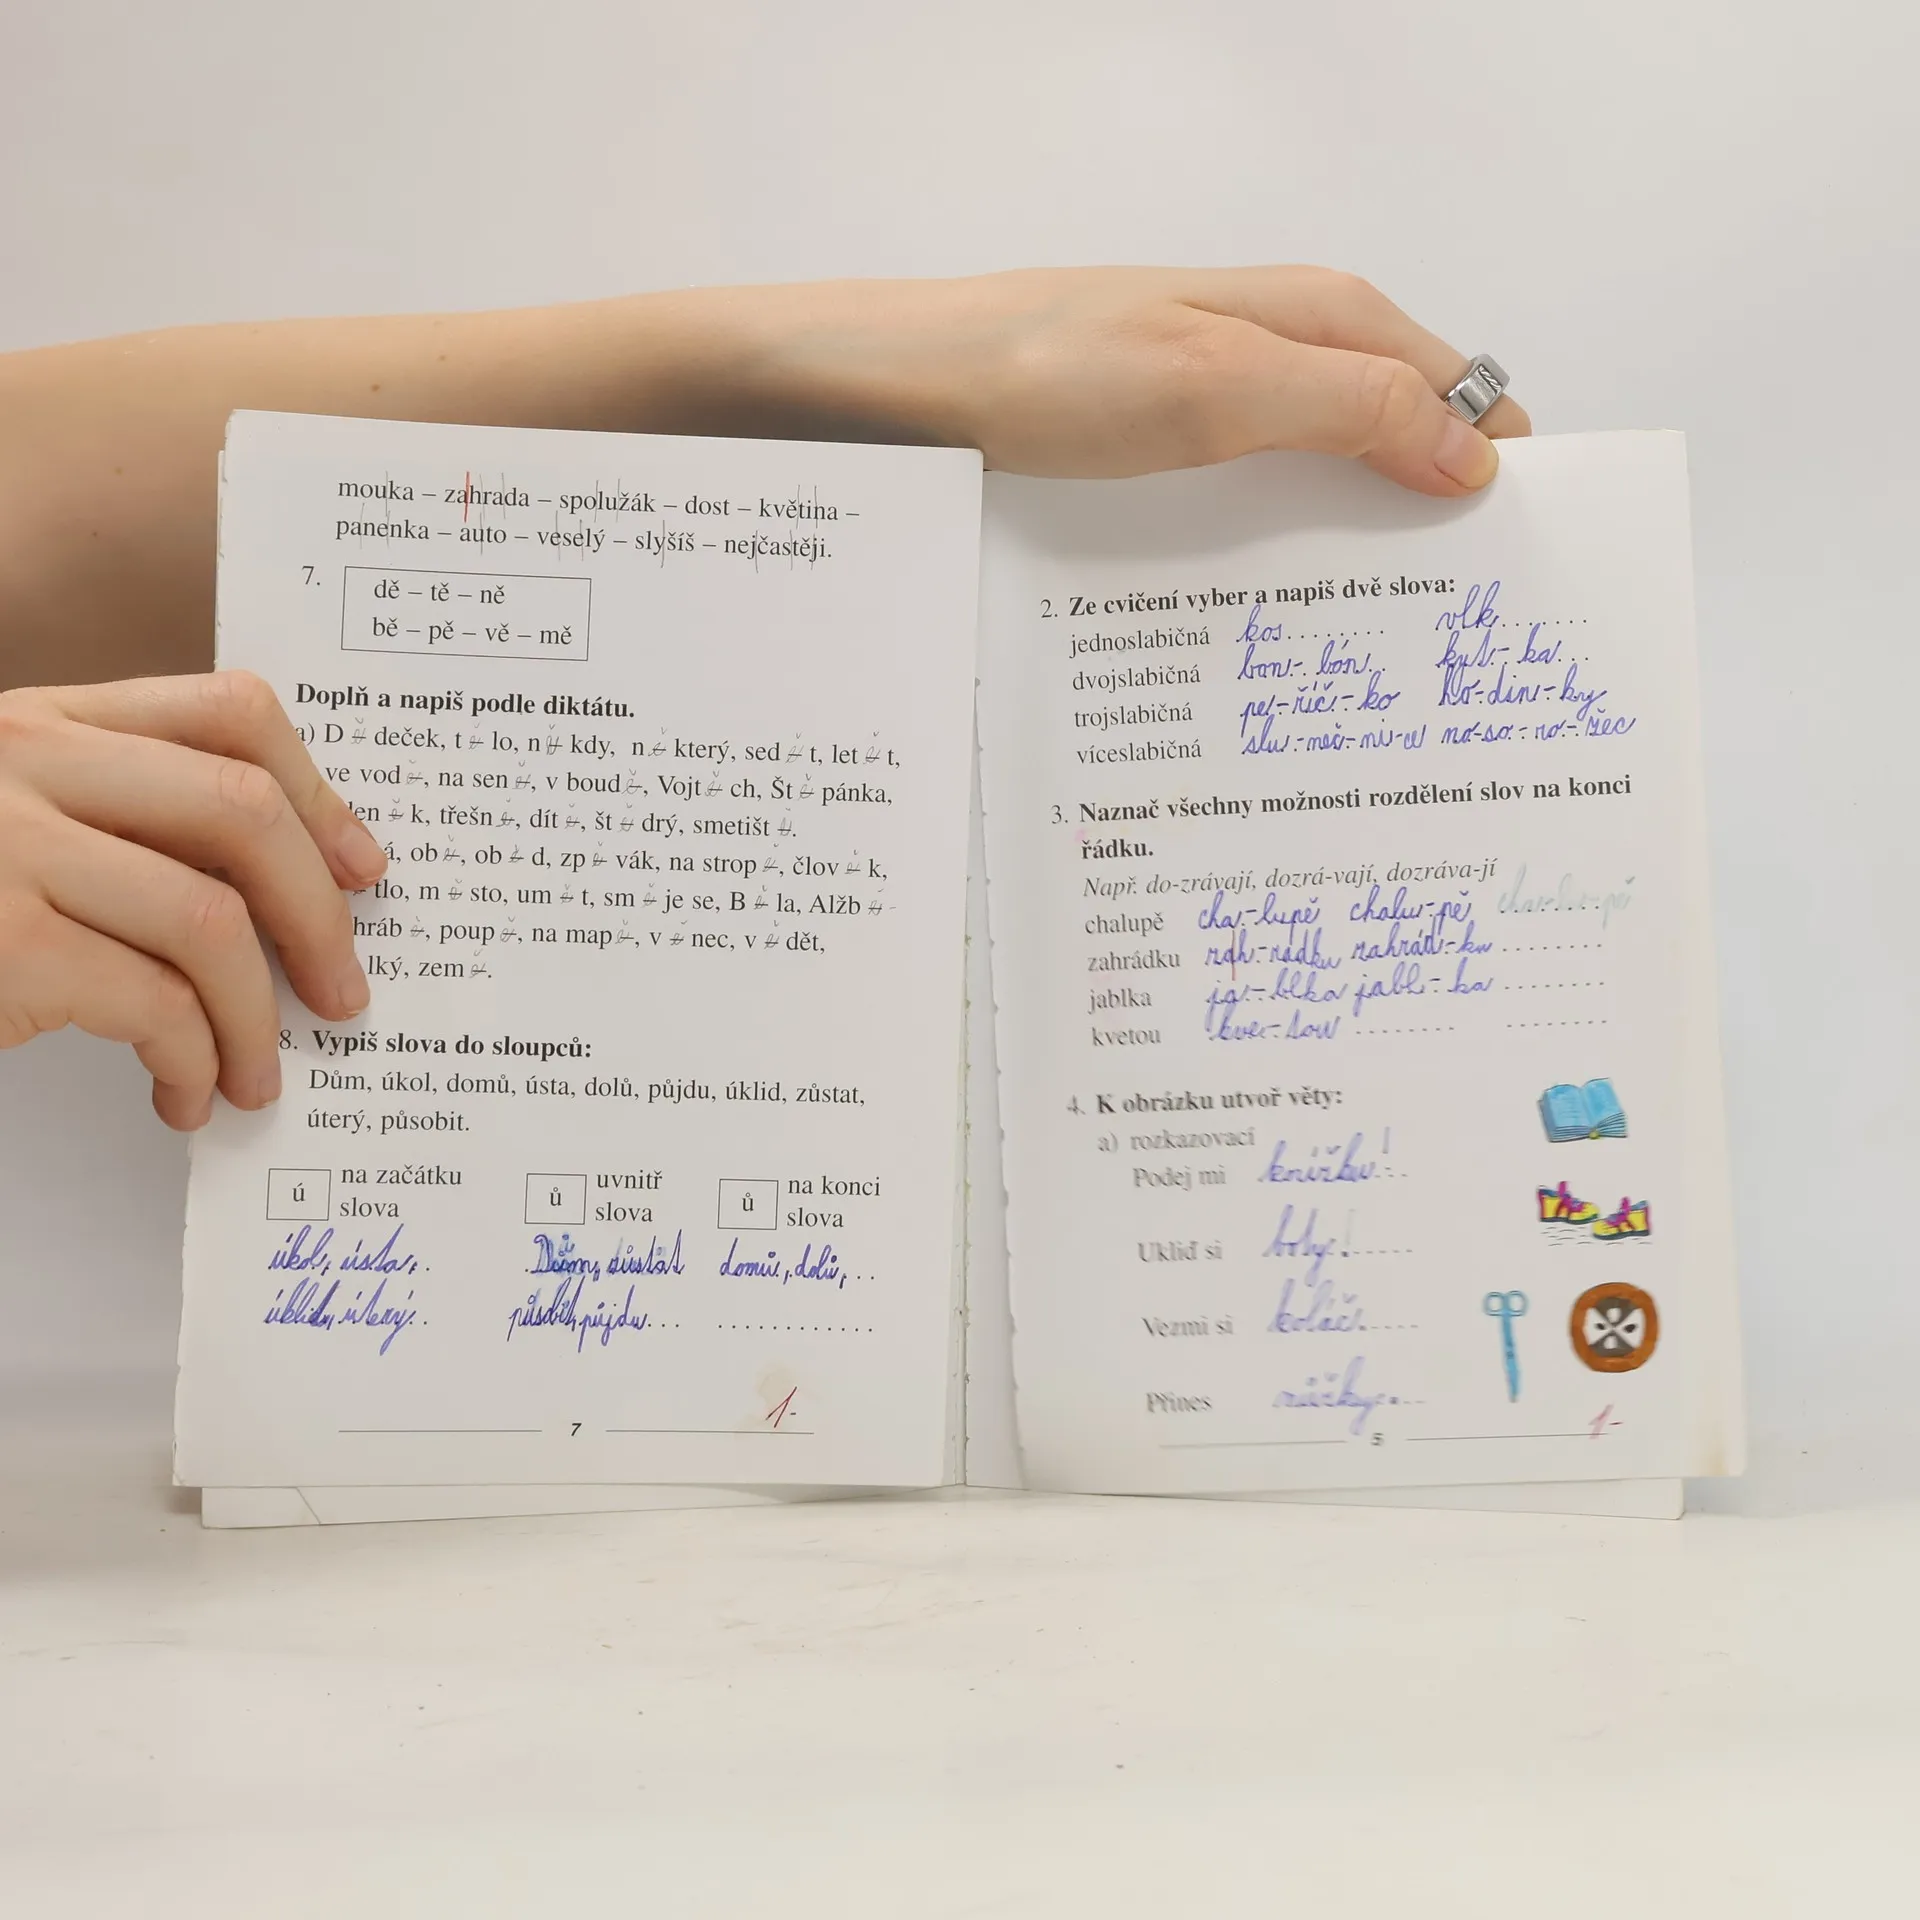 mouka – zahrada – spolužák – dost – květina –
panenka – auto – veselý – slyšíš – nejčastěji.
7.
dě – tě – ně
bě – pě – vě – mě
Doplň a napiš podle diktátu.
a) D ě deček, t ě lo, n ě kdy, n ě který, sed ě t, let ě t,
ve vod ě, na sen ě, v boud ě, Vojt ě ch, Št ě pánka,
třešn ě, dít ě, št ě drý, smetišt ě.
ob ě, ob ě d, zp ě vák, na strop ě, člov ě k,
m ě sto, um ě t, sm ě je se, B ě la, Alžb ě -
poup ě, na map ě, v ě nec, v ě dět,
zem ě.
8. Vypiš slova do sloupců:
Dům, úkol, domů, ústa, dolů, půjdu, úklid, zůstat,
úterý, působit.
ú na začátku slova
ů uvnitř slova
ů na konci slova
úkol, ústa, . Dům, zůstat domů, dolů, ..
úklid, úterý.. působit, půjdu... ............
1-
7
2. Ze cvičení vyber a napiš dvě slova:
jednoslabičná kos........ vlk.......
dvojslabičná bon-bón.. kyt-ka...
trojslabičná pe-říč-ko ho-din-ky
víceslabičná slu-neč-ni-ce no-so-ro-žec
3. Naznač všechny možnosti rozdělení slov na konci
řádku.
Např. do-zrávají, dozrá-vají, dozráva-jí
chalupě cha-lupě chalu-pě cha-lu-pě
zahrádku zah-rádku zahrád-ku ........
jablka ja-blka jabl-ka ........
kvetou kve-tou ........ ........
4. K obrázku utvoř věty:
a) rozkazovací
Podej mi knížku!..
Ukliď si boty!.....
Vezmi si koláč.....
Přines nůžky...
1-
5